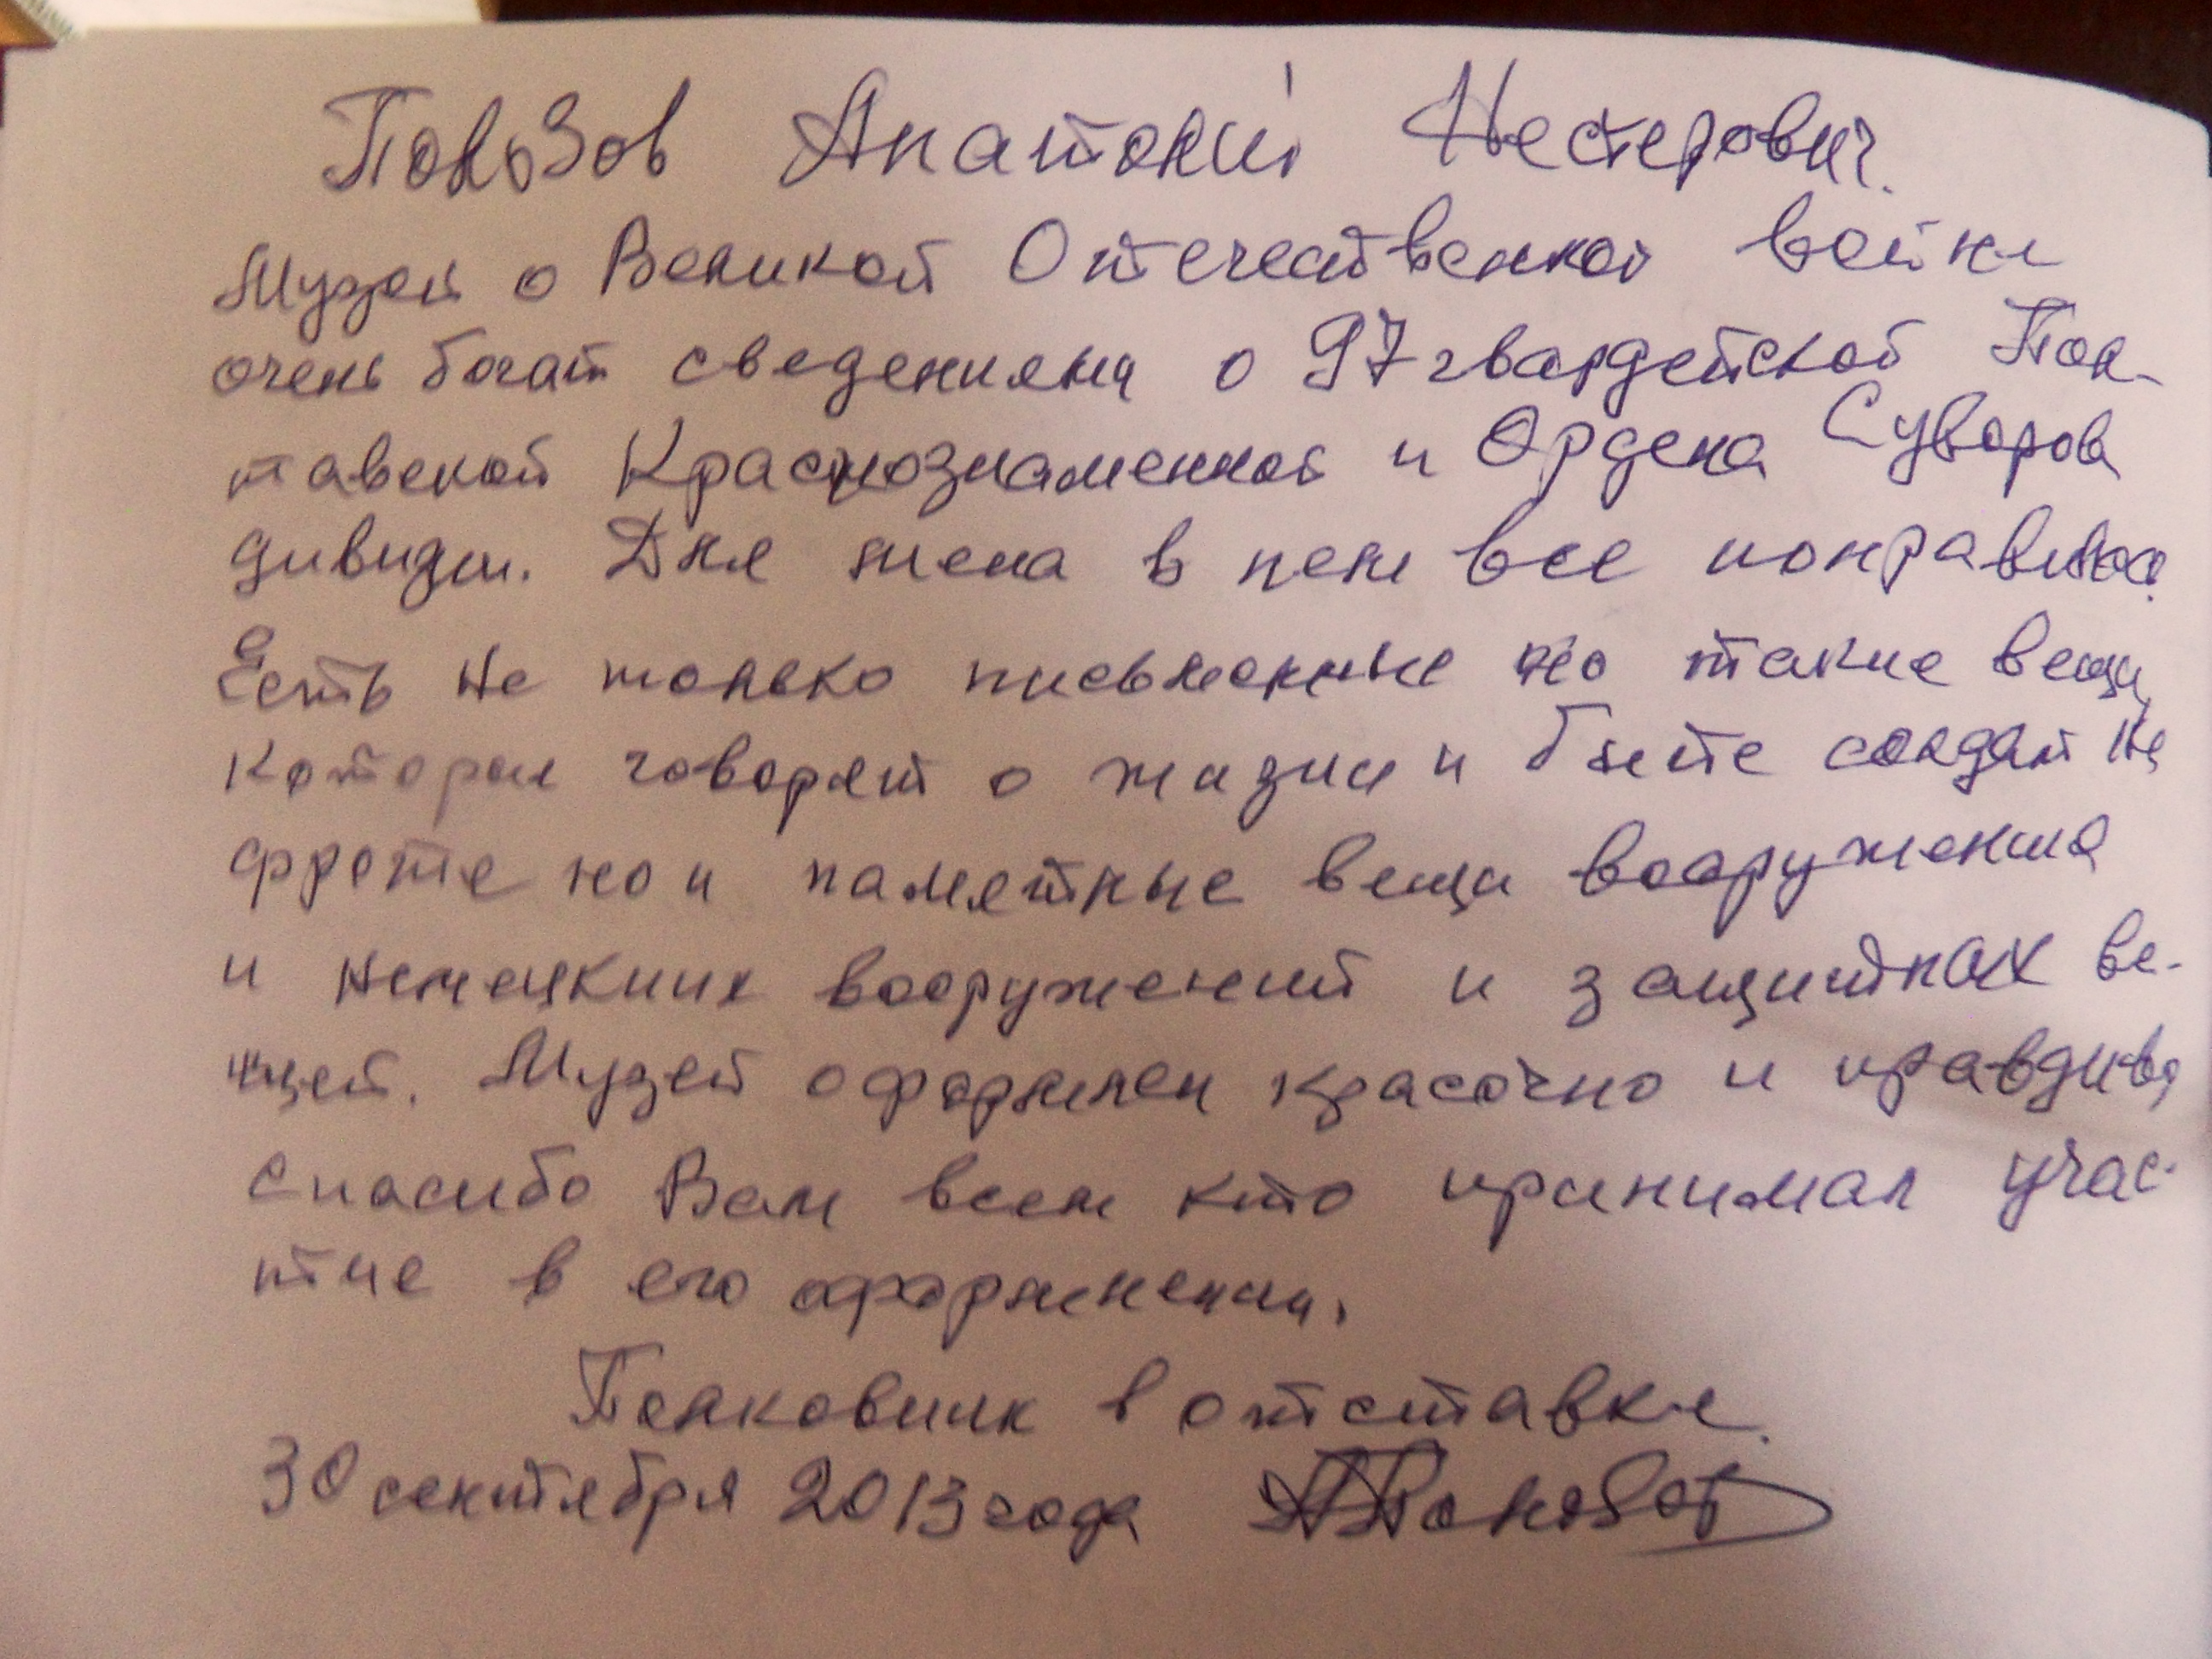 Полозов Анатолий Нестерович.
Музей о Великой Отечественной войне
очень богат сведениями о 97 гвардейской Пол-
тавской Краснознаменной и Ордена Суворова
дивизии. Для меня в нем все понравилось.
Есть не только письменные но такие вещи
которые говорят о жизни и быте солдат на
фроте но и памятные вещи вооружения
и немецких вооружений и защитных ве-
щей. Музей оформлен красочно и правдиво
спасибо Вам всем кто принимал учас-
тие в его оформлении.
Полковник в отставке.
30 сентября 2013 года АПолозов